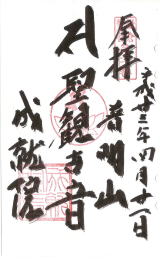 奉拝
平成廿三年四月廿一日
聖観世音
成就院